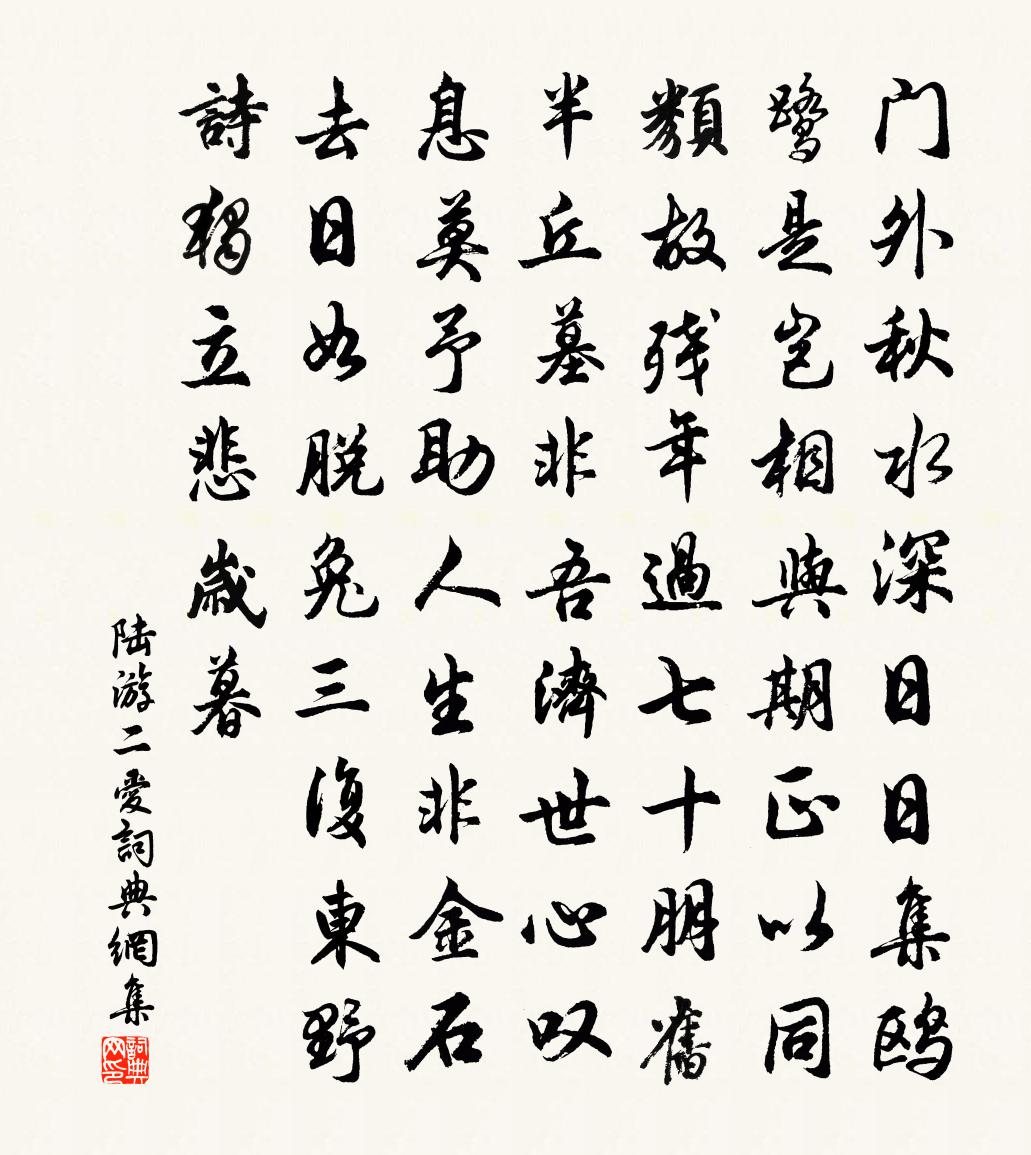 门外秋水深日日集鸥
鹭是岂相與期正以同
類故残年過七十朋舊
半丘墓非吾濟世心叹
息莫予助人生非金石
去日如脱兔三復東野
詩獨立悲歲暮
陆游二愛詞典網集
詞典网印